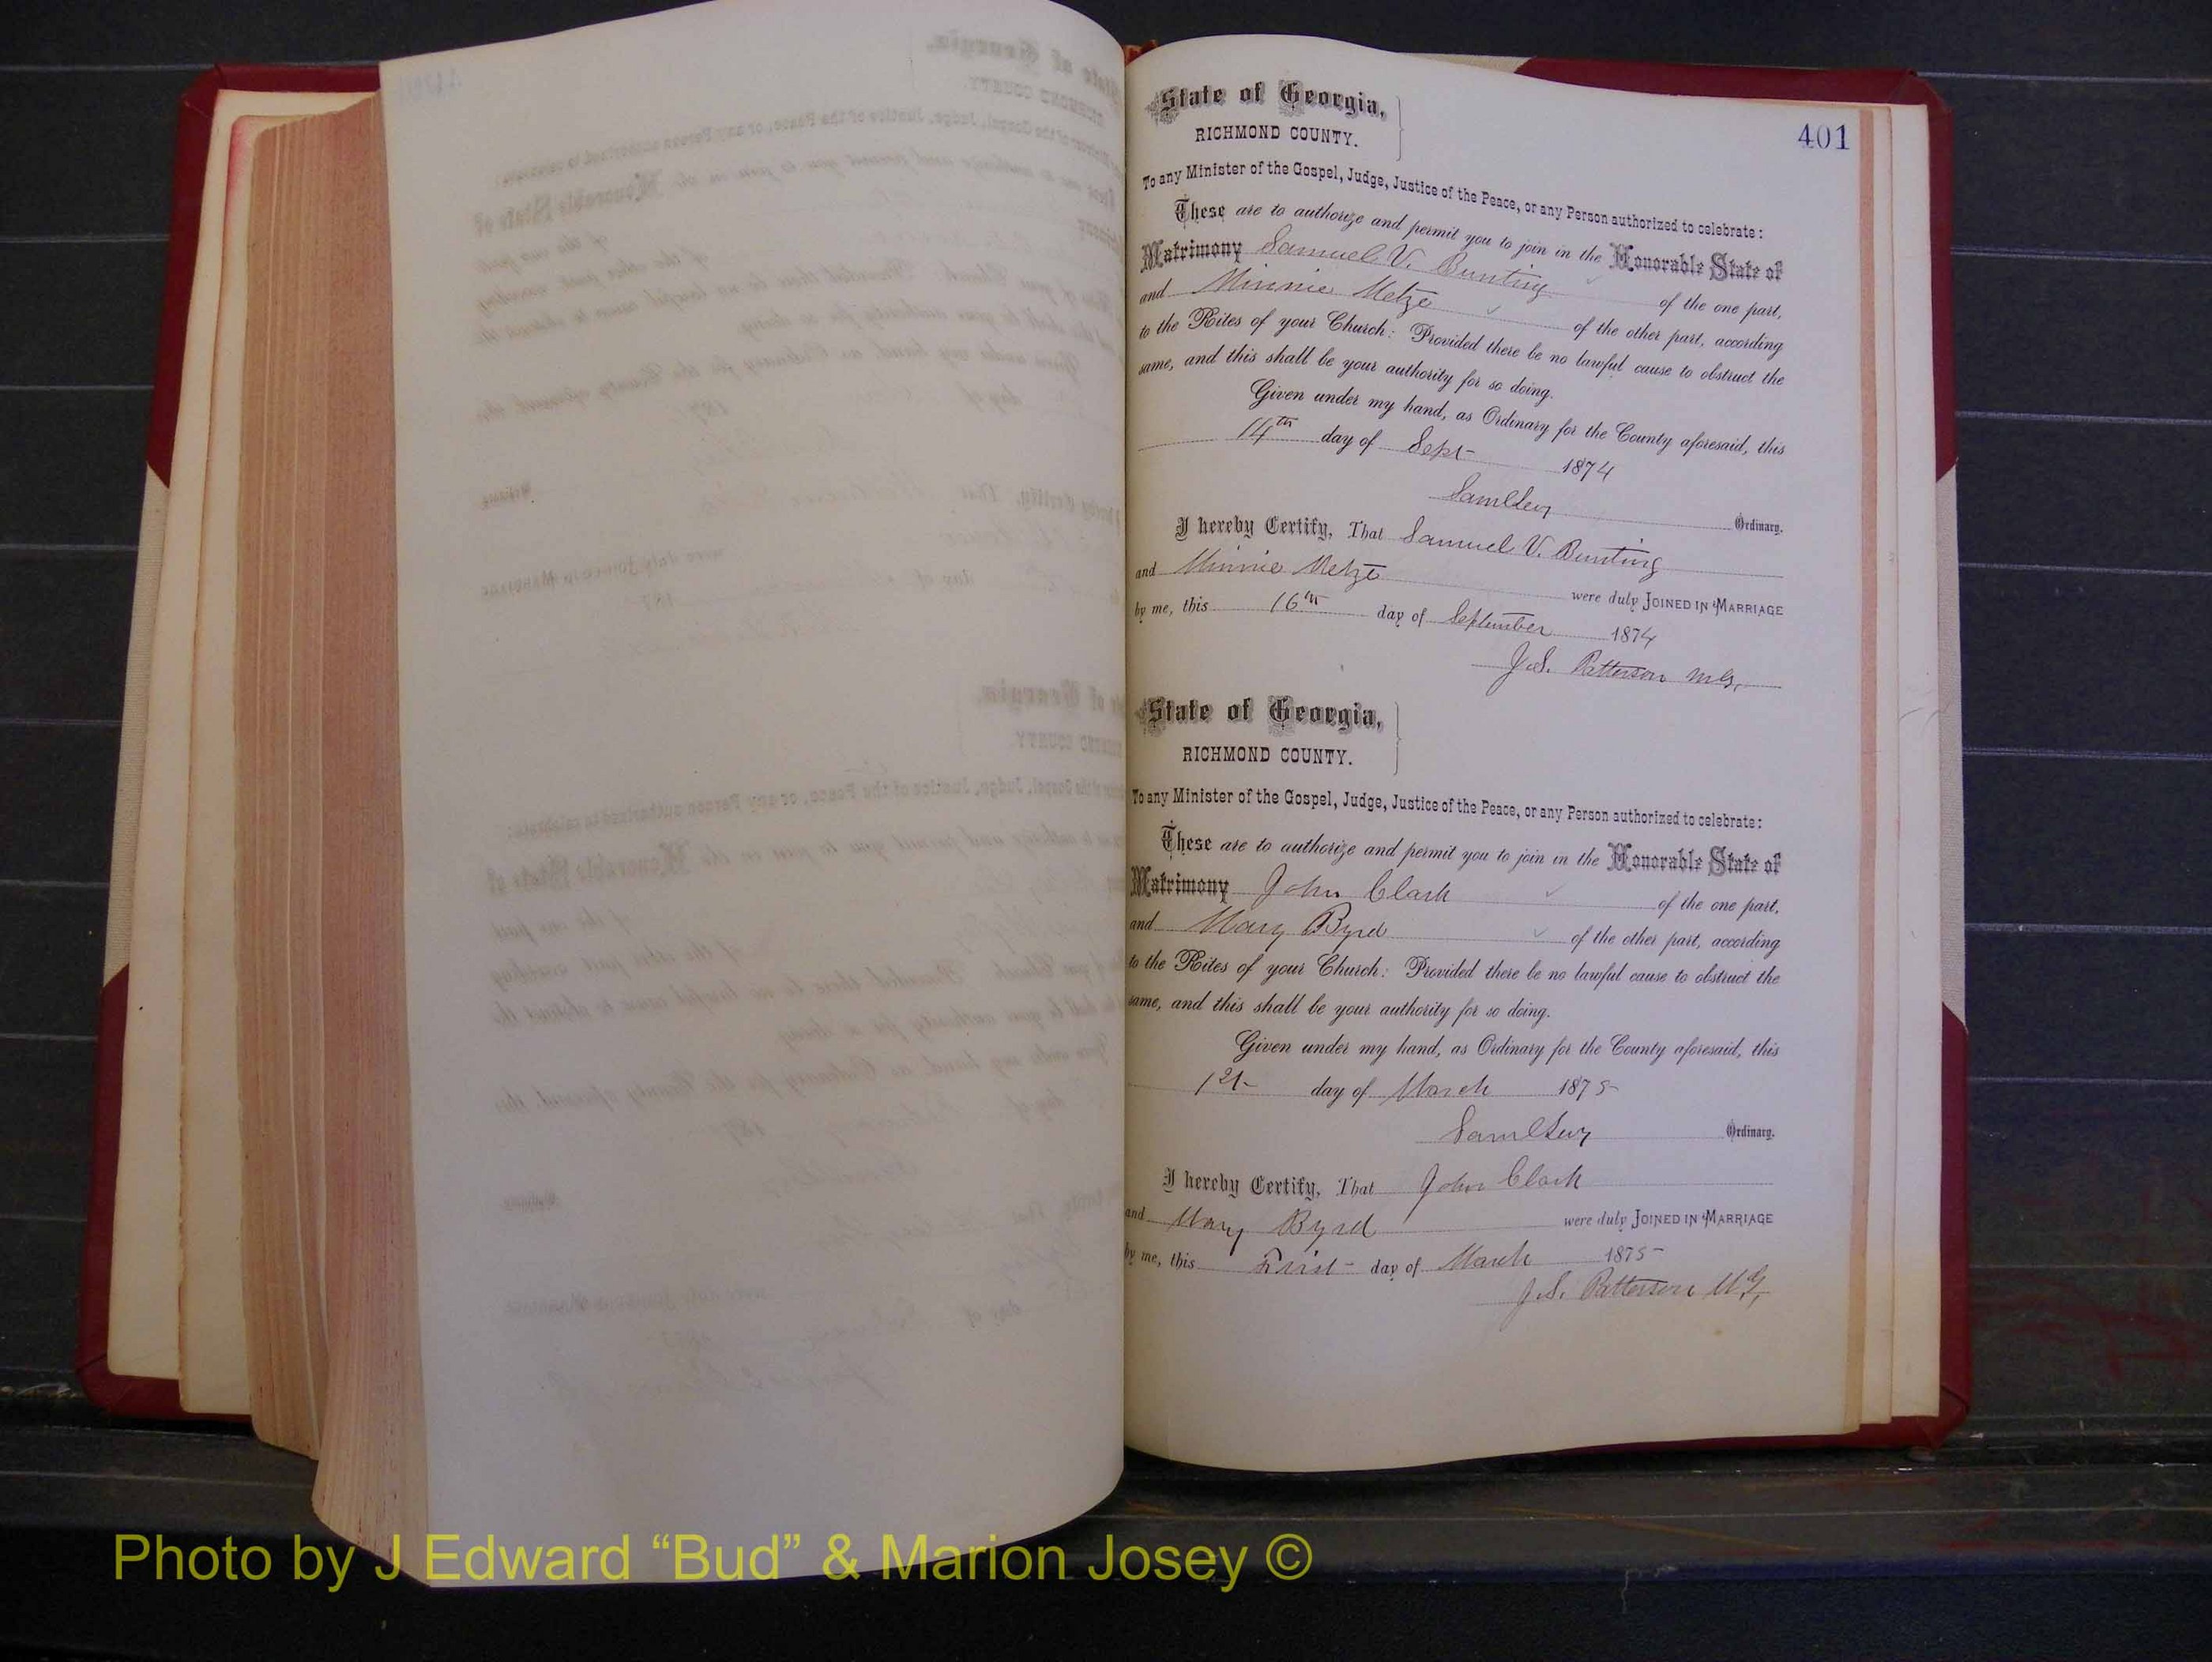 401
State of Georgia,
RICHMOND COUNTY.
To any Minister of the Gospel, Judge, Justice of the Peace, or any Person authorized to celebrate:
These are to authorize and permit you to join in the Honorable State of
Matrimony Samuel V. Bunting of the one part,
and Minnie Metze of the other part, according
to the Rites of your Church: Provided there be no lawful cause to obstruct the
same, and this shall be your authority for so doing.
Given under my hand, as Ordinary for the County aforesaid, this
14th day of Sept 1874
Saml Levy Ordinary.
I hereby Certify, That Samuel V. Bunting
and Minnie Metze were duly JOINED IN MARRIAGE
by me, this 16th day of September 1874
J.S. Patterson M.G.
State of Georgia,
RICHMOND COUNTY.
To any Minister of the Gospel, Judge, Justice of the Peace, or any Person authorized to celebrate:
These are to authorize and permit you to join in the Honorable State of
Matrimony John Clark of the one part,
and Mary Byrd of the other part, according
to the Rites of your Church: Provided there be no lawful cause to obstruct the
same, and this shall be your authority for so doing.
Given under my hand, as Ordinary for the County aforesaid, this
1st day of March 1875
Saml Levy Ordinary.
I hereby Certify, That John Clark
and Mary Byrd were duly JOINED IN MARRIAGE
by me, this First day of March 1875
J.S. Patterson M.G.
Photo by J Edward “Bud” & Marion Josey ©